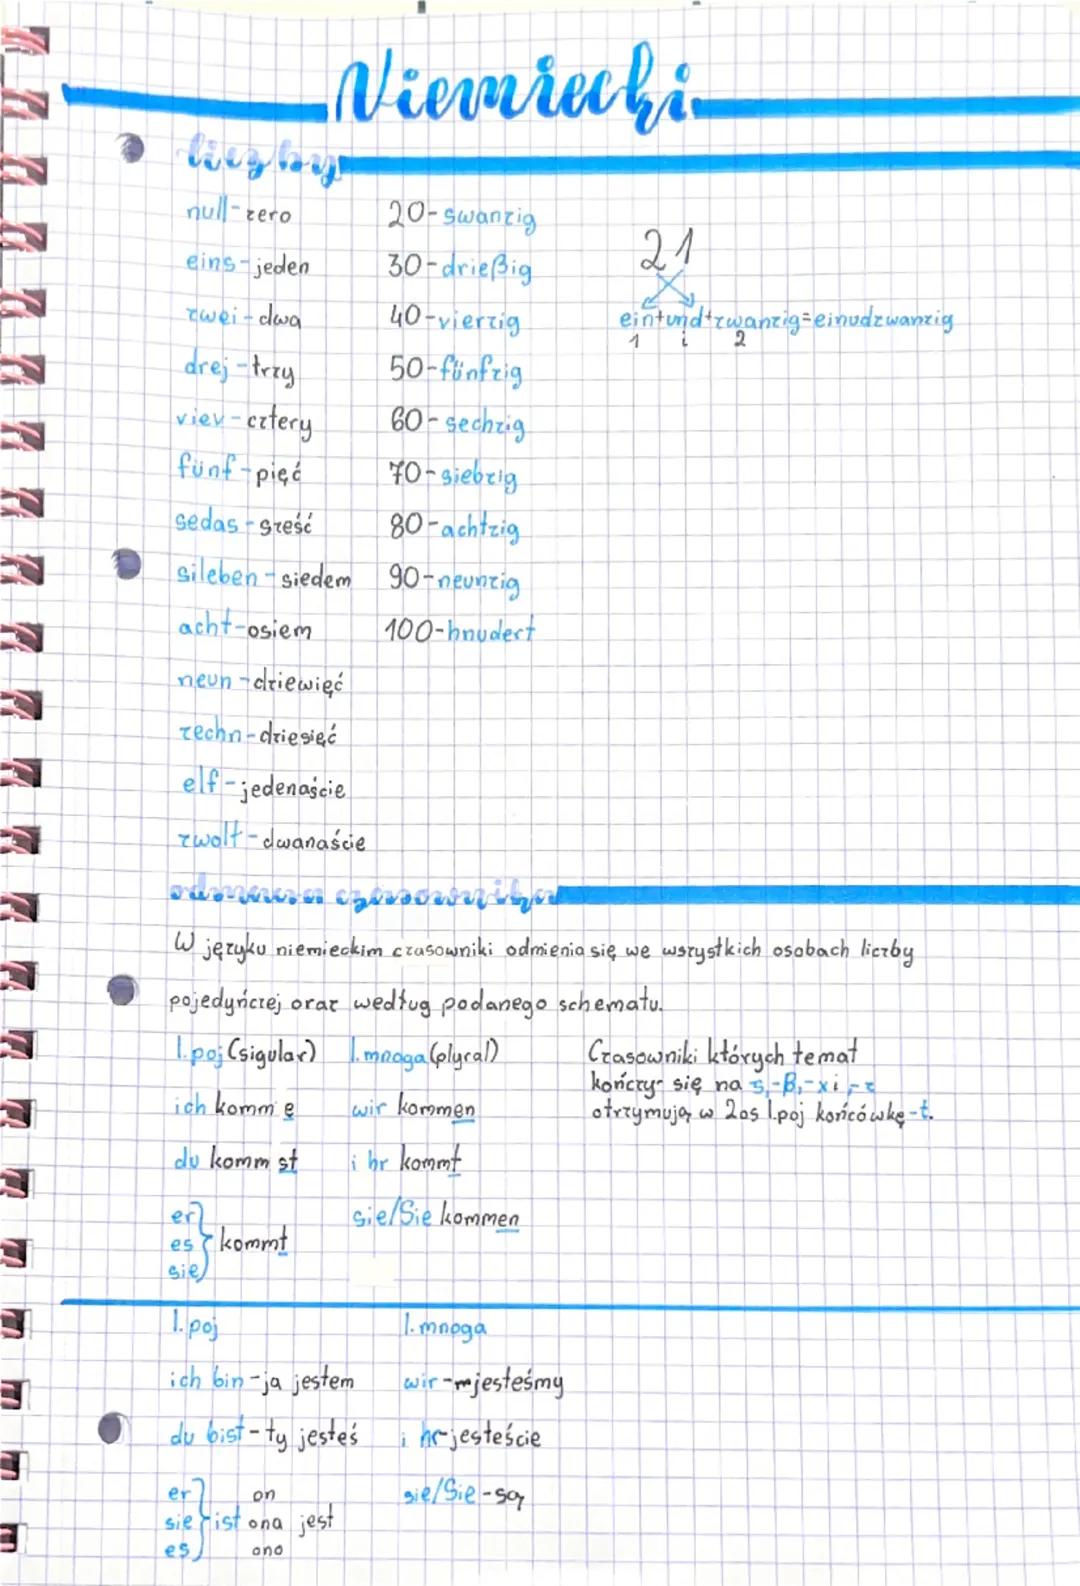 Niemiecki
liczby
null-zero 20-swanzig
eins-jeden 30-drießig 21
zwei-dwa 40-vierzig ein+und+zwanzig=einudzwanzig
1 i 2
drej-trzy 50-fünfzig
viev-cztery 60-sechzig
fünf-pięć 70-siebzig
sedas-sześć 80-achtzig
sileben-siedem 90-neunzig
acht-osiem 100-hnudert
neun-dziewięć
zechn-dziesięć
elf-jedenaście
zwolt-dwanaście
odmiana czasownika
W języku niemieckim czasowniki odmienia się we wszystkich osobach liczby
pojedyńczej oraz według podanego schematu.
l.poj(sigular) l.mnoga(plural) Czasowniki których temat
kończy się na s,-ß,-x i,-z
ich komm e wir kommen otrzymują w 2os l.poj końcówkę-t.
du komm st i hr kommt
er sie/Sie kommen
es kommt
sie
l.poj l.mnoga
ich bin-ja jestem wir-mjesteśmy
du bist-ty jesteś i hr-jesteście
er on sie/Sie-są
sie ist ona jest
es ono